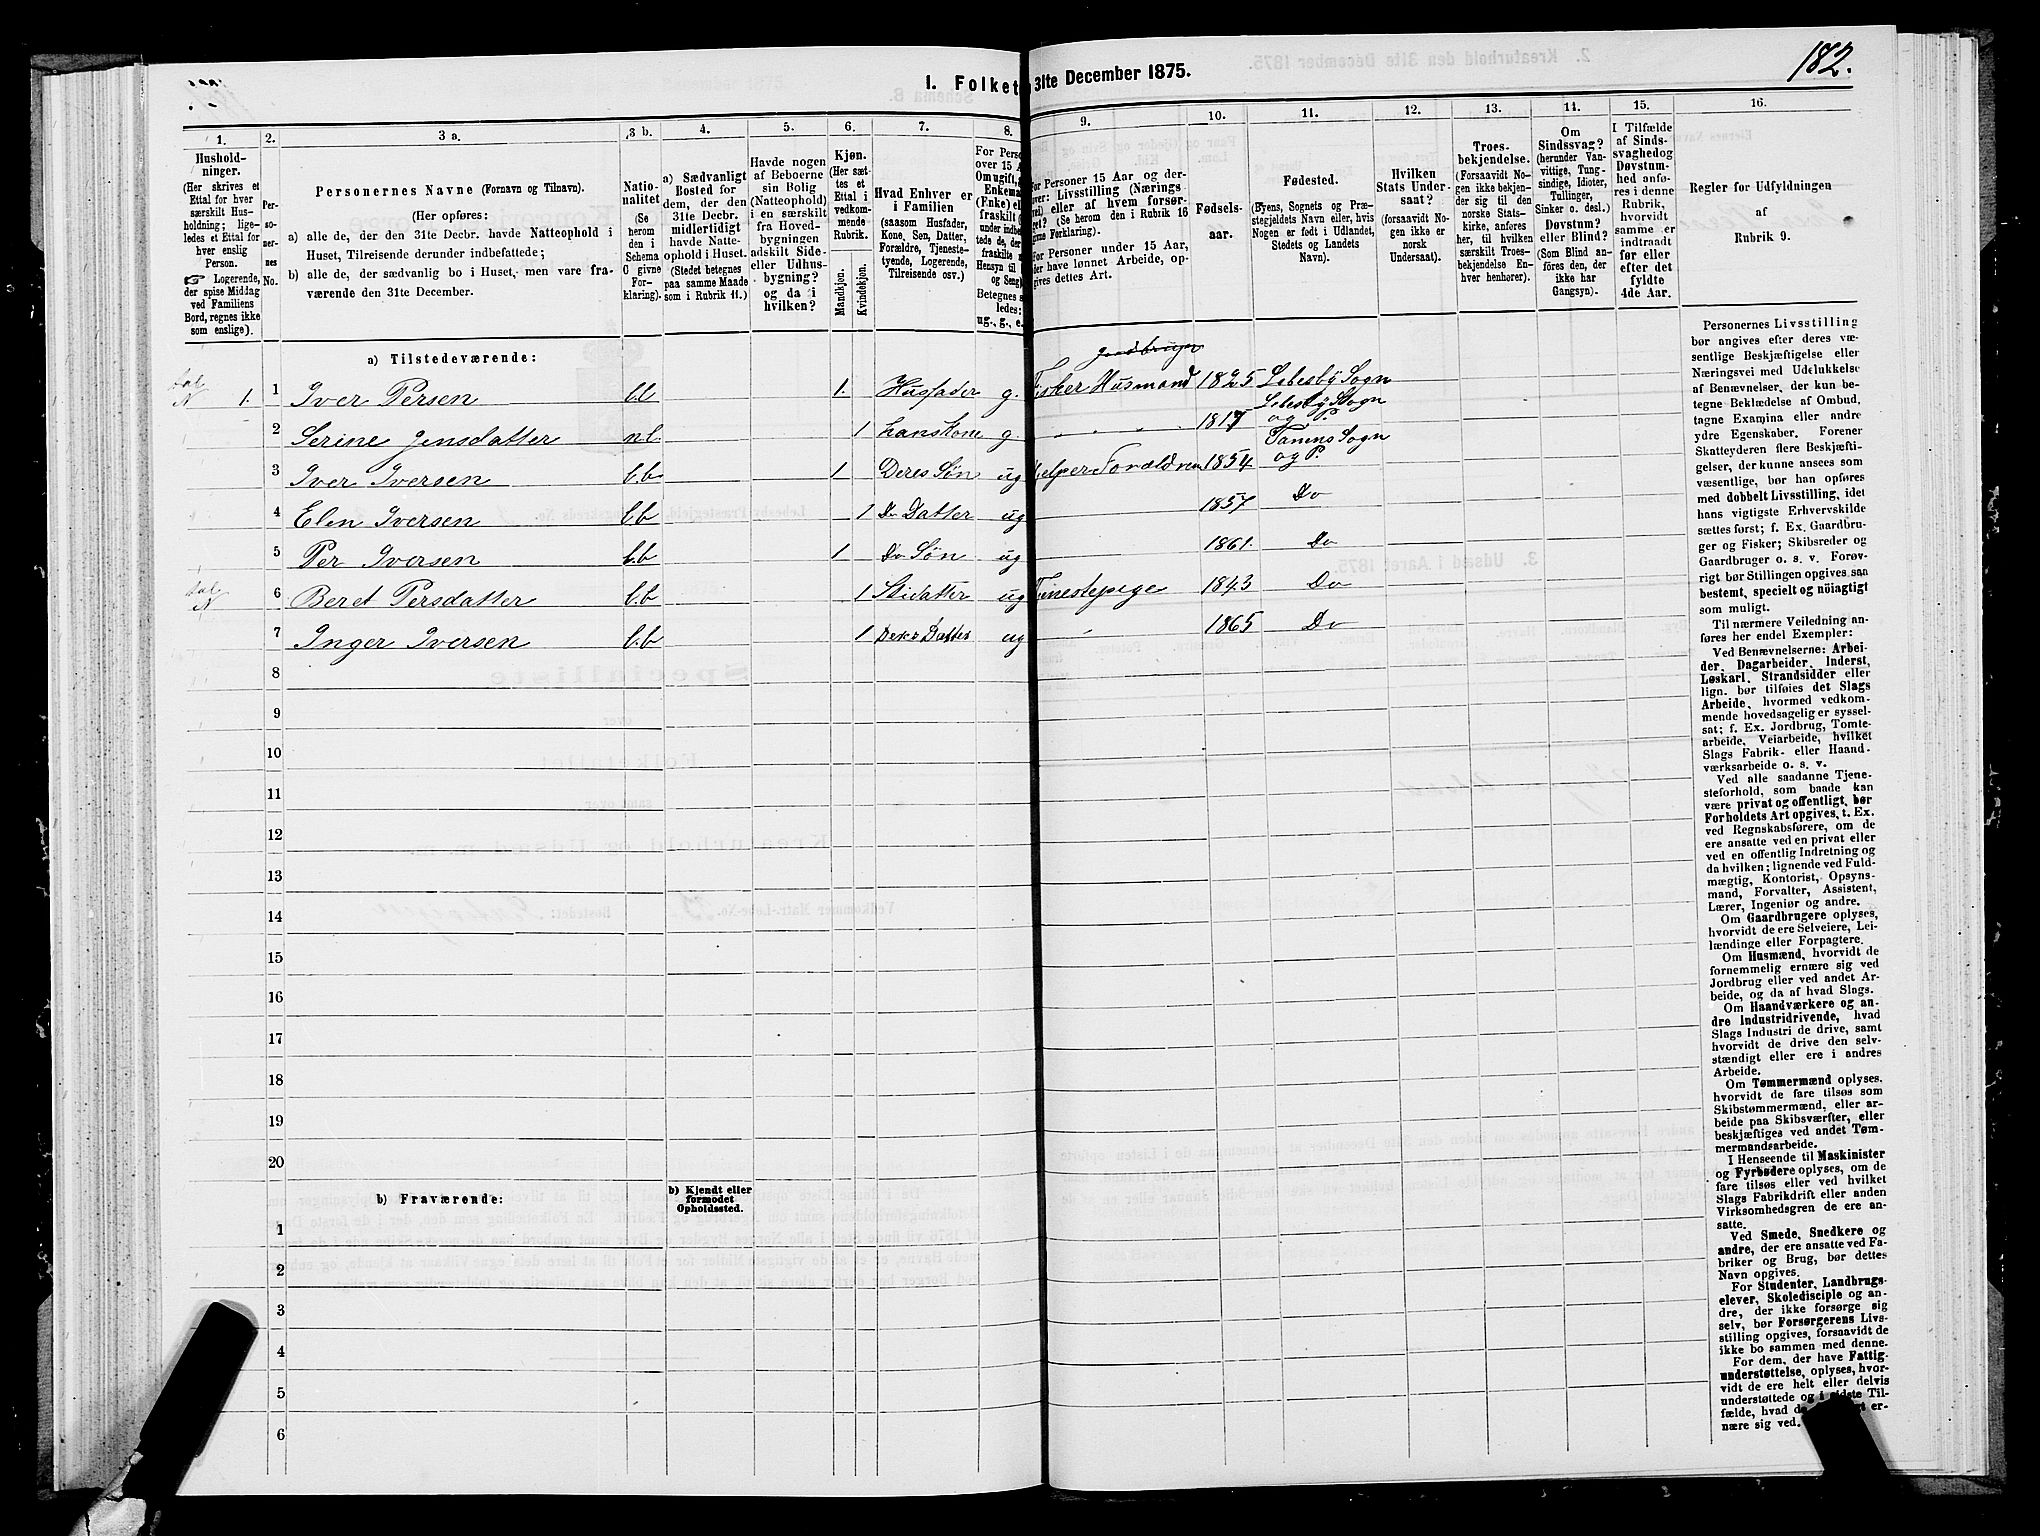 182.
I. Folket
31te December 1875.
1.
2.
3 a.
3 b.
4.
5.
6.
7.
8.
9.
10.
11.
12.
13.
14.
15.
16.
Hushold-
ninger.
(Her skrives et
Ettal for hver
særskilt Hus-
holdning; lige-
ledes et Ettal for
hver enslig
Person.
☞ Logerende,
der spise Middag
ved Familiens
Bord, regnes ikke
som enslige).
Per-
so-
ner-
nes
No.
Personernes Navne (Fornavn og Tilnavn).
(Her opføres:
a) alle de, der den 31te Decbr. havde Natteophold i
Huset, Tilreisende derunder indbefattede;
b) alle de, der sædvanlig bo i Huset, men vare fra-
værende den 31te December.
Natio-
nalitet
(Se
herom
den i
Schema
O givne
For-
klaring).
a) Sædvanligt
Bosted for
dem, der den
31te Decbr.
midlertidigt
havde Natte-
ophold i Huset.
(Stedet betegnes
paa samme Maade
som i Rubrik 11.)
Havde nogen
af Beboerne
sin Bolig
(Natteophold)
i en særskilt
fra Hoved-
bygningen
adskilt Side-
eller Udhus-
bygning?
og da i
hvilken?
Kjøn.
(Her sæt-
tes et
Ettal i
vedkom-
mende
Rubrik.
Mandkjøn.
Kvindekjøn.
Hvad Enhver er
i Familien
(saasom Husfader,
Kone, Søn, Datter,
Forældre, Tjeneste-
tyende, Logerende,
Tilreisende osv.)
For Perso
over 15 A
Om ugift,
Enkema
(Enke) el
fraskilt
under indbe
tede de, der
fraskilte
Hensyn til
og Seng
Betegnes s
ledes:
ug., g., e.
For Personer 15 Aar og der-
over: Livsstilling (Nærings
vei) eller af hvem forsør-
get? (Se herom den i Rubrik 16
givne Forklaring).
For Personer under 15 Aar,
der have lønnet Arbeide, op-
gives dettes Art.
Fødsels-
aar.
Fødested.
(Byens, Sognets og Præ-
stegjeldets Navn eller, hvis
Nogen er født i Udlandet,
Stedets og Landets
Navn).
Hvilken
Stats Under-
saat?
(forsaavidt No-
gen ikke er
norsk
Undersaat).
Troes-
bekjendelse.
(Forsaavidt No-
gen ikke bekjen-
der sig til den
norske Stats-
kirke, anføres
her, til hvilken
særskilt Troes-
bekjendelse En-
hver henhører).
Om
Sindssvag?
(herunder Van-
vittige, Tung-
sindige, Idioter,
Tullinger,
Sinker o. desl.)
Døvstum?
eller Blind?
(Som Blind an-
føres den, der
ikke har
Gangsyn).
I Tilfælde
af Sinds-
svaghed og
Døvstum-
hed anfø-
res i denne
Rubrik,
hvorvidt
samme er
indtraadt
før eller
efter det
fyldte
4de Aar.
Regler for Udfyldningen
af
Rubrik 9.
a) Tilstedeværende:
Jordbruger
1. 1 Iver Persen b.b 1. Husfader g. Fisker Husmand 1825 Lebesby Sogn
2 Serine Jensdatter n.l. 1 hans Kone g. " " " 1817 Lebesby Sogn
og P.
3 Iver Iversen b.b 1 Deres Søn ug Hjelper Forældrene 1854 Tanens Sogn
og P.
4 Elen Iversen b.b 1 Do Datter ug 1857 Do
5 Per Iversen b.b 1 Do Søn ug 1861. Do
6 Beret Persdatter b.b 1 Stidatter ug Tjenestepige 1843 Do
7 Inger Iversen b.b 1 Deres Datter ug " 1865 Do
8
9
10
11
12
13
14
15
16
17
18
19
20
b) Fraværende:
b) Kjendt eller
formodet
Opholdssted.
1
2
3
4
5
6
Personernes Livsstilling
bør angives efter deres væ-
sentlige Beskjæftigelse eller
Næringsvei med Udelukkelse
af Benævnelser, der kun be-
tegne Beklædelse af Ombud,
tagne Examina eller andre
ydre Egenskaber. Forener
Skatteyderen flere Beskjæfti-
gelser, der kunne ansees som
væsentlige, bør han opføres
med dobbelt Livsstilling, idet
hans vigtigste Erhvervskilde
sættes først; f. Ex. Gaardbru-
ger og Fisker; Skibsreder og
Gaardbruger o. s. v. Forøv-
rigt bør Stillingen opgives saa
bestemt, specielt og nöiagtigt
som muligt.
Til nærmere Veiledning an-
føres her endel Exempler:
Ved Benævnelserne: Arbei-
der, Dagarbeider, Inderst,
Løskarl, Strandsidder eller
lign. bør tilføies det Slags
Arbeide, hvormed vedkom-
mende hovedsagelig er syssel-
sat; f. Ex. Jordbrug, Tomte-
arbeide, Veiarbeide, hvilket
Slags Fabrik- eller Haand-
værksarbeide o. s. v.
Ved alle saadanne Tjene-
steforhold, som baade kan
være privat og offentligt, bør
Forholdets Art opgives, t. Ex.
ved Regnskabsførere, om de
ere ansatte ved en privat eller
ved en offentlig Indretning og
da hvilken; lignende ved Fuld-
mægtig, Kontorist, Opsyns-
mand, Forvalter, Assistent,
Lærer, Ingeniør og andre.
Om Gaardbrugere oplyses,
hvorvidt de ere Selveiere, Lei-
lændinge eller Forpagtere.
Om Husmænd, hvorvidt de
fornemmelig ernære sig ved
Jordbrug eller ved andet Ar-
beide, og da af hvad Slags.
Om Haandværkere og an-
dre Industridrivende, hvad
Slags Industri de drive, samt
hvorvidt de drive den selv-
stændigt eller ere i andres
Arbeide.
Om Tømmermænd oplyses,
hvorvidt de fare tilsøs som
Skibstømmermænd, eller ar-
beide paa Skibsværfter, eller
beskjæftiges ved andet Tøm-
mermandsarbeide.
I Henseende til Maskinister
og Fyrbødere oplyses, om de
fare tilsøs eller ved hvilket
Slags Fabrikdrift eller anden
Virksomhedsgren de ere an-
satte.
Ved Smede, Snedkere og
andre, der ere ansatte ved Fa-
briker og Brug, bør dettes
Navn opgives.
For Studenter, Landbrugs-
elever, Skoledisciple og an-
dre, der ikke forsørge sig
selv, bør Forsørgerens Livs-
stilling opgives, forsaavidt de
ikke bo sammen med denne.
For dem, der have Fattig-
understøttelse, oplyses, hvor-
vidt de ere helt eller delvis
understøttede og i sidste Til-
fælde, hvad de er-
nære sig ved.